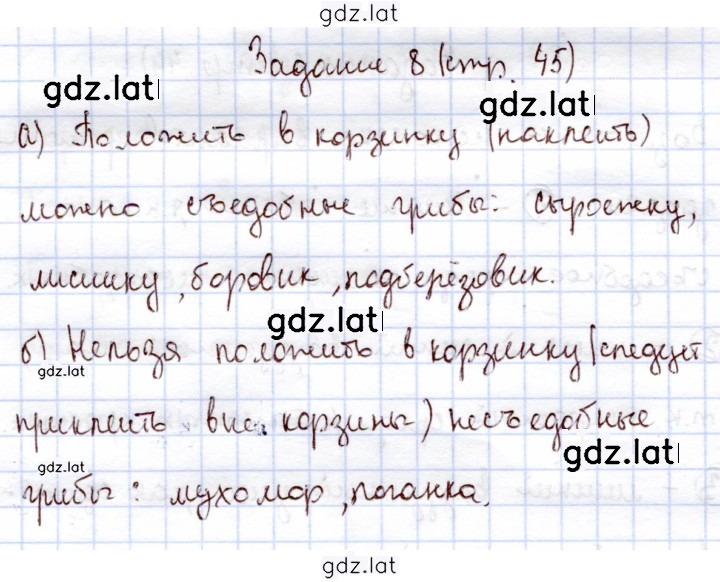 gdz.lat
Задание 8 (стр. 45)
gdz.lat
gdz.lat
а) Положить в корзинку (наклеить)
можно съедобные грибы: сыроежку,
лисичку, боровик, подберёзовик.
gdz.lat
б) Нельзя положить в корзинку (следует
gdz.lat
приклеить вне корзины) несъедобные
gdz.lat
gdz.lat
грибы: мухомор, поганка.
gdz.lat